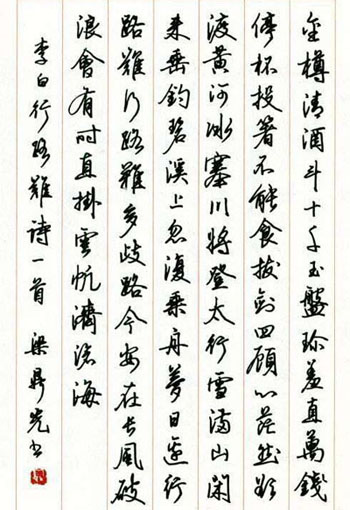 金樽清酒斗十千玉盤珍羞直萬錢
停杯投箸不能食拔劍四顧心茫然欲
渡黄河冰塞川將登太行雪滿山閑
來垂釣碧溪上忽復乘舟夢日邊行
路難行路難多歧路今安在長風破
浪會有时直掛雲帆濟滄海
李白行路難詩一首 梁鼎光书